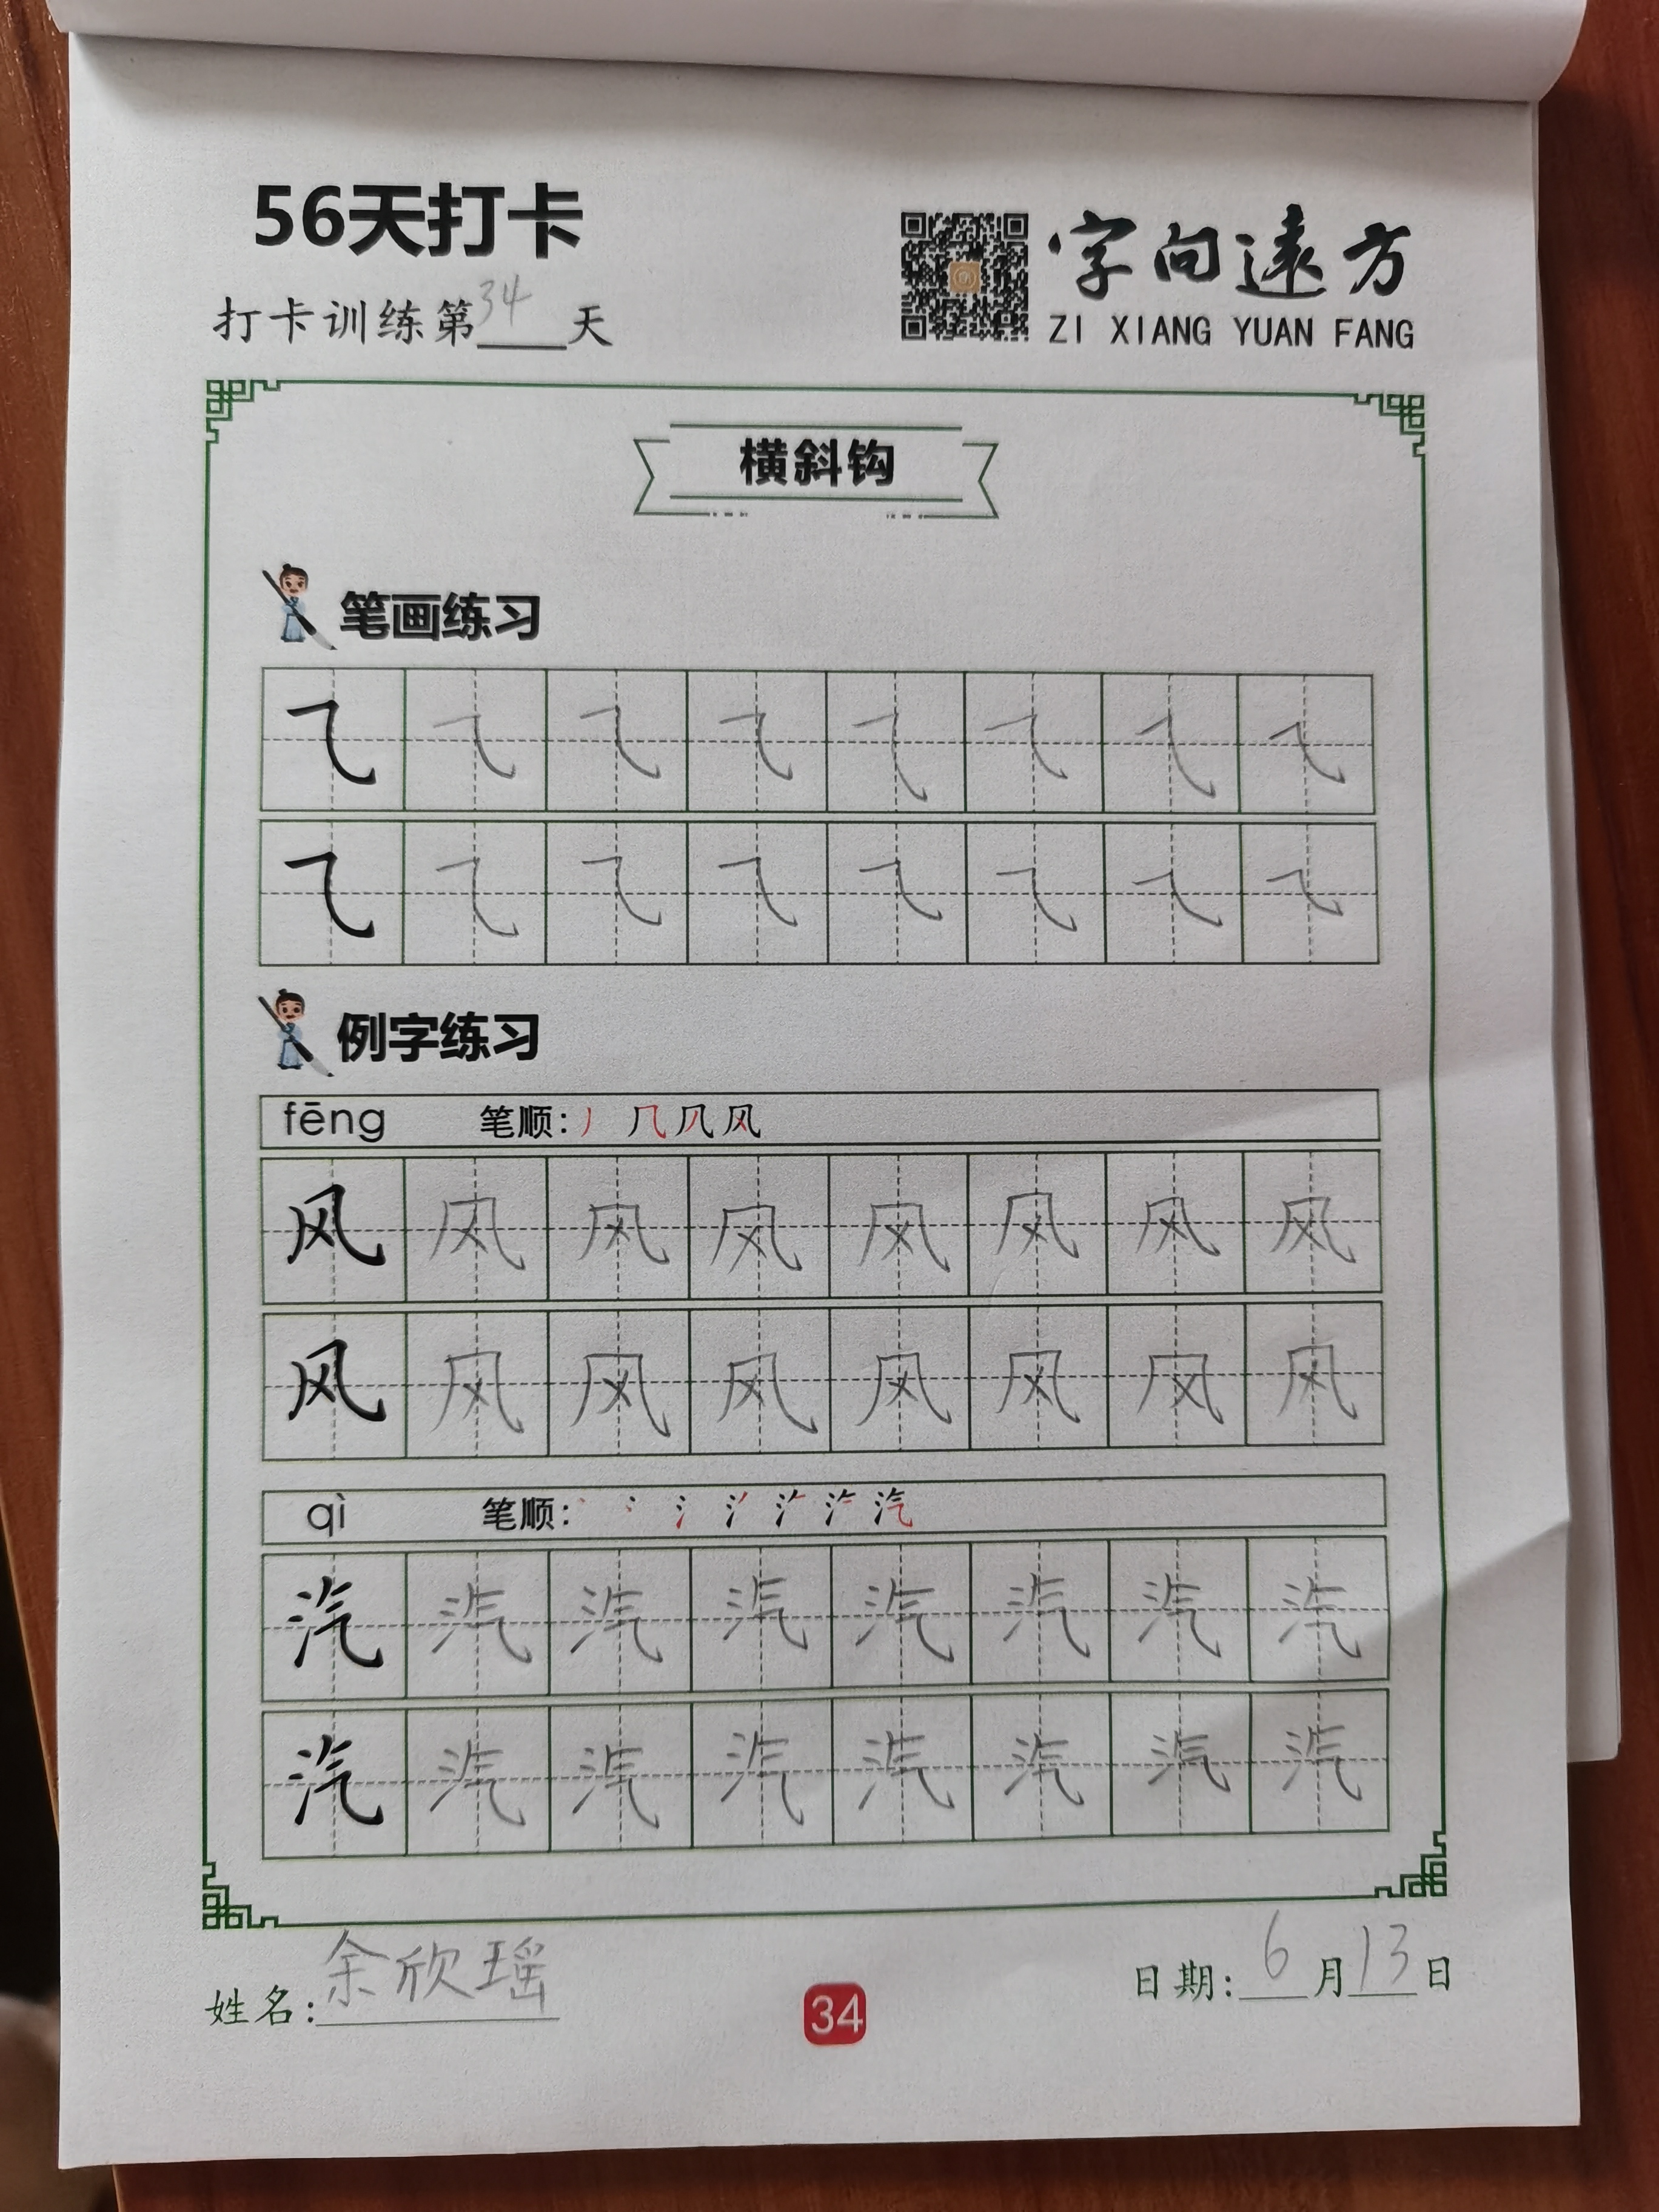 56天打卡
打卡训练第34天
字向遠方
ZI XIANG YUAN FANG
横斜钩
笔画练习
㇈ ㇈ ㇈ ㇈ ㇈ ㇈ ㇈ ㇈
㇈ ㇈ ㇈ ㇈ ㇈ ㇈ ㇈ ㇈
例字练习
fēng 笔顺:
风 风 风 风 风 风 风 风
风 风 风 风 风 风 风 风
qì 笔顺:
汽 汽 汽 汽 汽 汽 汽 汽
汽 汽 汽 汽 汽 汽 汽 汽
姓名:余欣瑶
34
日期:6月13日